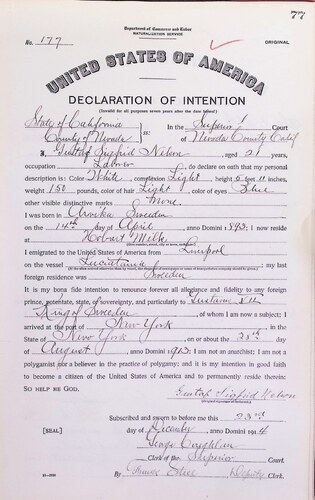 77
Department of Commerce and Labor
NATURALIZATION SERVICE
No. 177
ORIGINAL
UNITED STATES OF AMERICA
DECLARATION OF INTENTION
(Invalid for all purposes seven years after the date hereof)
State of California
County of Nevada ss: In the Superior Court
of Nevada County Calif
I, Gustaf Sigfrid Nelson, aged 21 years,
occupation Laborer, do declare on oath that my personal
description is: Color White, complexion Light, height 5 feet 11 inches,
weight 150 pounds, color of hair Light, color of eyes Blue
other visible distinctive marks None
I was born in Sweden
on the 14th day of April, anno Domini 1893; I now reside
at Hobart Mills
I emigrated to the United States of America from Liverpool
on the vessel Lucitania; my last
foreign residence was Sweden
It is my bona fide intention to renounce forever all allegiance and fidelity to any foreign
prince, potentate, state, or sovereignty, and particularly to Gustave
King of Sweden, of whom I am now a subject; I
arrived at the port of New York, in the
State of New York, on or about the 28th day
of August, anno Domini 1913; I am not an anarchist; I am not a
polygamist nor a believer in the practice of polygamy; and it is my intention in good faith
to become a citizen of the United States of America and to permanently reside therein:
SO HELP ME GOD.
Gustaf Sigfrid Nelson
Subscribed and sworn to before me this 23rd
[SEAL] day of December, anno Domini 1914
Clerk of the Superior Court.
By Deputy Clerk.